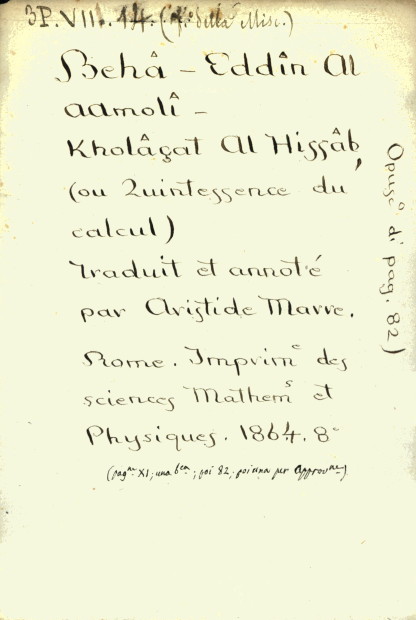 3P. VII. 14. (f.º della Misc.)
Behâ - Eddîn Al
aamolî -
Kholâçat Al Hissâb,
(ou Quintessence du
calcul)
Traduit et annoté
par Aristide Marre.
Rome. Imprimᵉ des
sciences Mathemˢ et
Physiques. 1864. 8º
(pagⁿᵉ XI; una bᶜᵃ; poi 82; poi una per Approvⁿᵉ)
Opuscº di pag. 82)